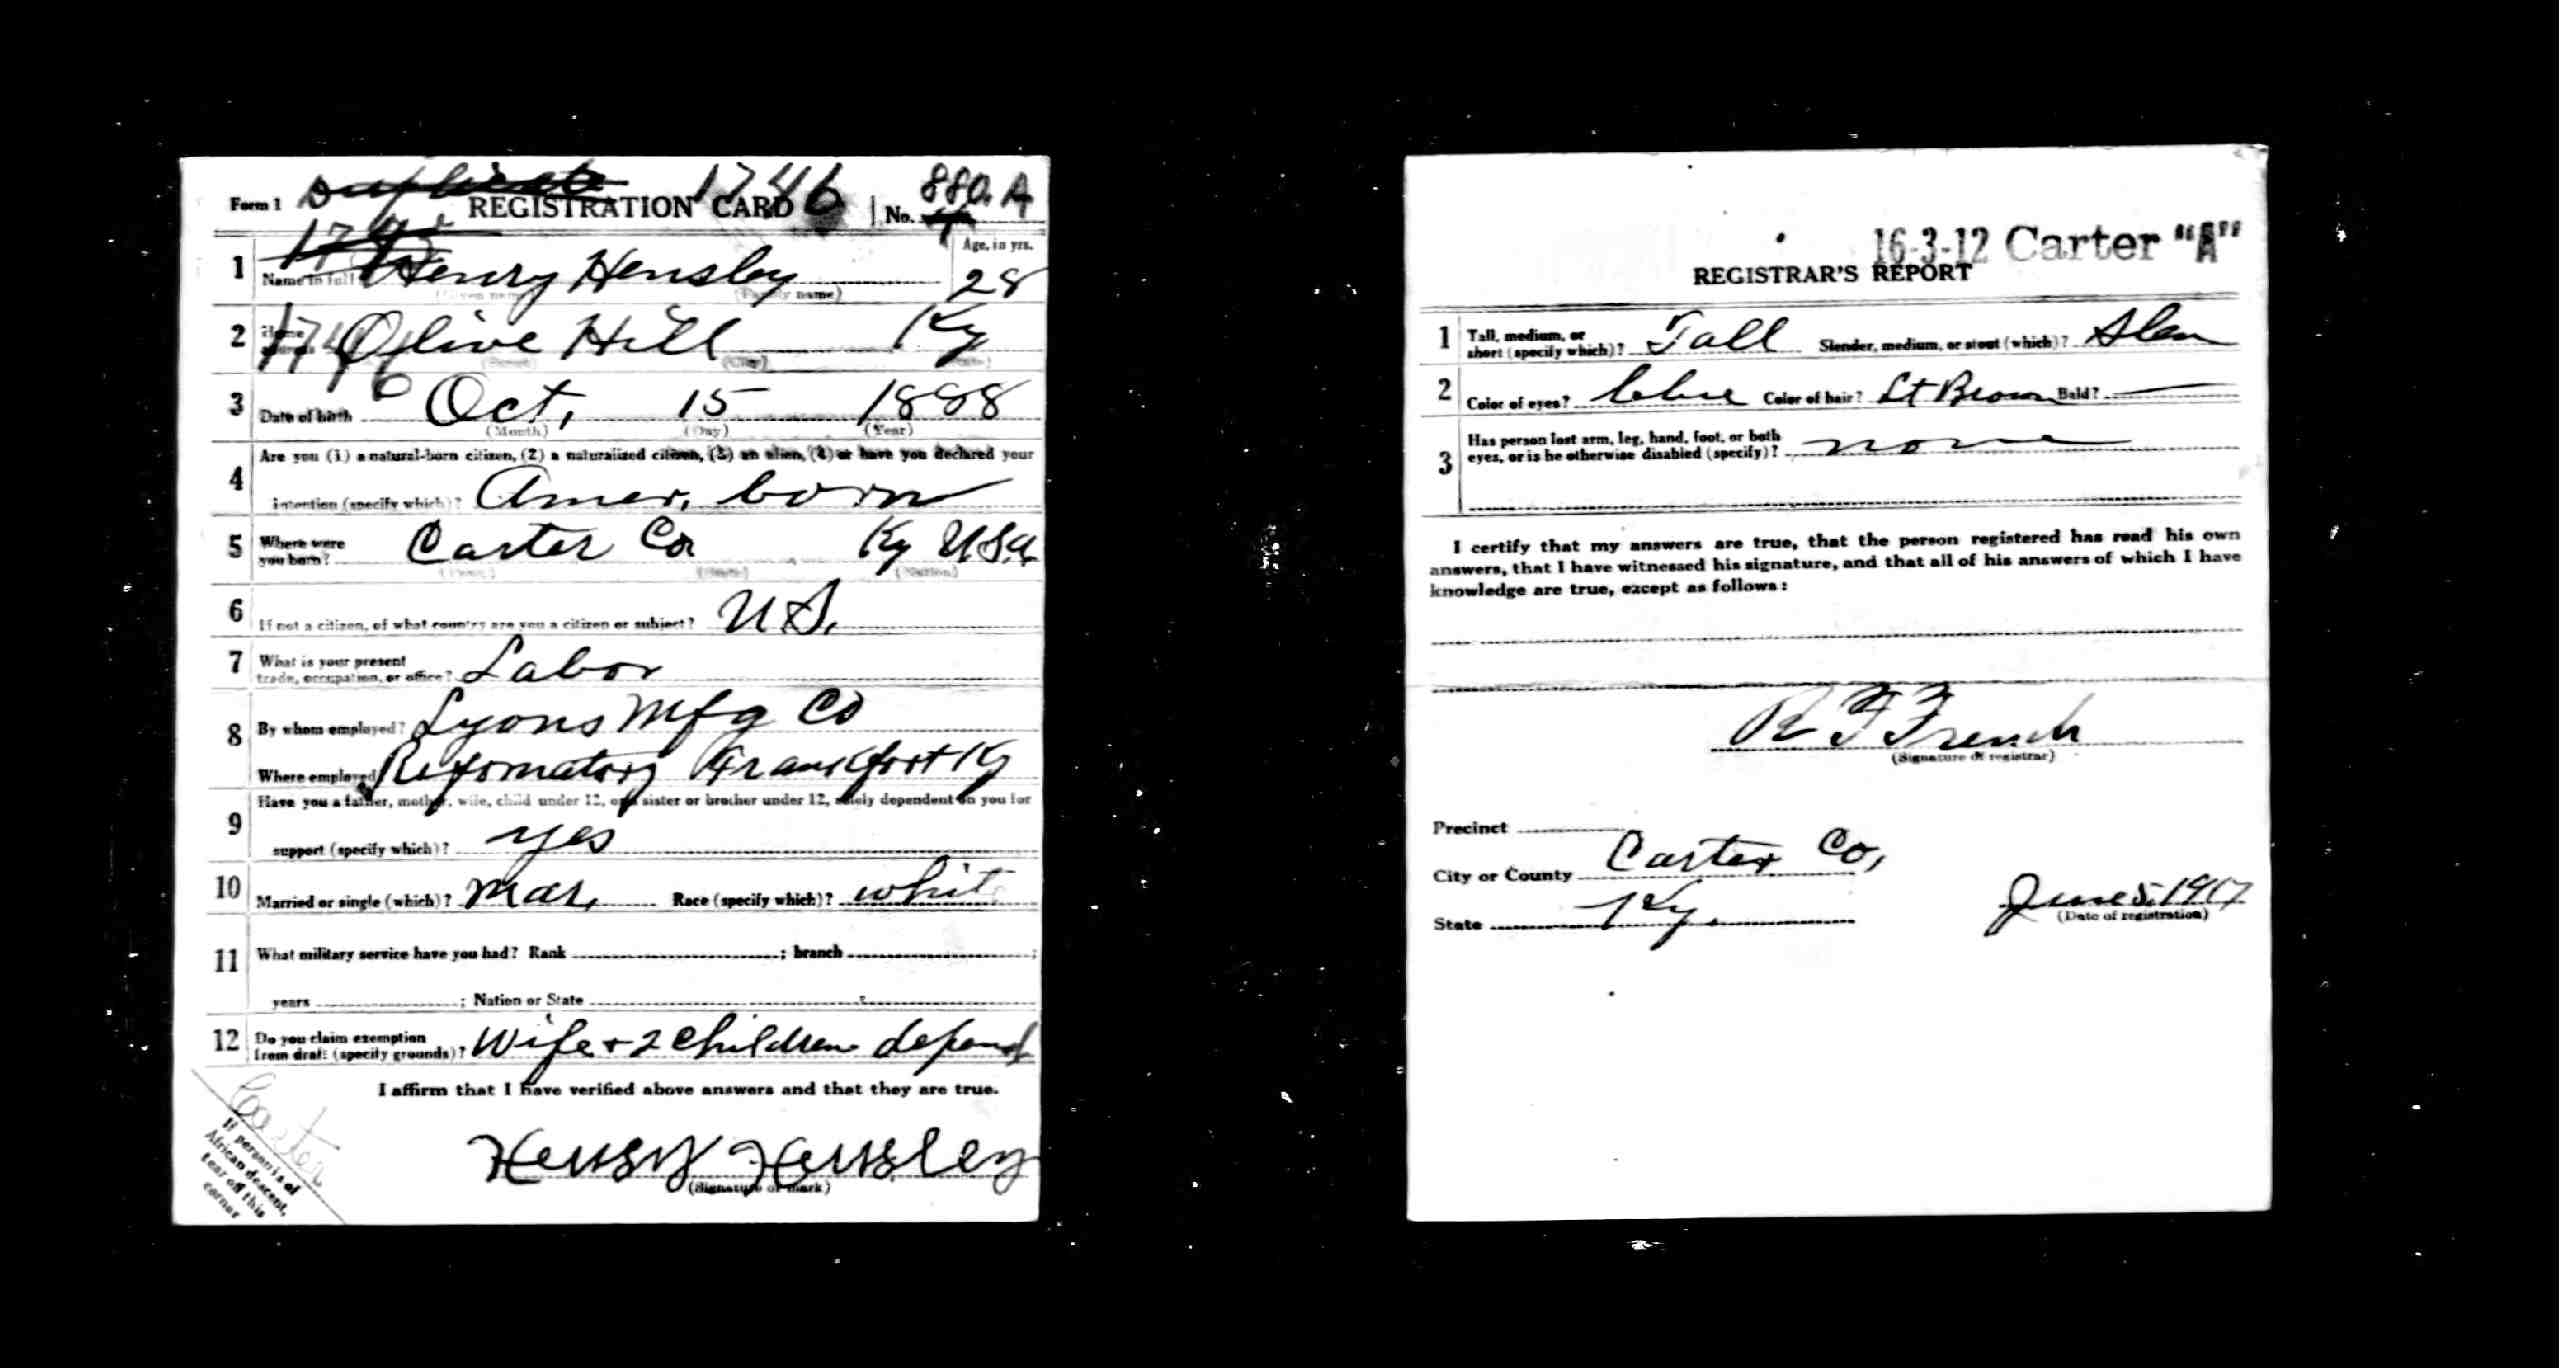 Form 1 Duplicate REGISTRATION CARD 1746 No. 880. A
1 Name in full Henry Hensley Age, in yrs. 28
(Given name) (Family name)
2 Home address Olive Hill Ky
(Street) (City) (State)
3 Date of birth Oct, 15 1888
(Month) (Day) (Year)
4 Are you (1) a natural-born citizen, (2) a naturalized citizen, (3) an alien, (4) or have you declared your
intention (specify which)? Amer, born
5 Where were you born? Carter Co Ky USA
(Town) (State) (Nation)
6 If not a citizen, of what country are you a citizen or subject? U S.
7 What is your present
trade, occupation, or office? Labor
8 By whom employed? Lyons Mfg Co
Where employed Refomatory Frankfort Ky
9 Have you a father, mother, wife, child under 12, or a sister or brother under 12, solely dependent on you for
support (specify which)? yes
10 Married or single (which)? Mar, Race (specify which)? whit
11 What military service have you had? Rank ; branch ;
years ; Nation or State
12 Do you claim exemption
from draft (specify grounds)? Wife + 2 children depend
I affirm that I have verified above answers and that they are true.
Henry Hensley
(Signature or mark)
Carter
If person is of
African descent,
tear off this
corner
16-3-12 Carter "A"
REGISTRAR'S REPORT
1 Tall, medium, or
short (specify which)? Tall Slender, medium, or stout (which)? Slen
2 Color of eyes? blue Color of hair? Lt Brown Bald? —
3 Has person lost arm, leg, hand, foot, or both
eyes, or is he otherwise disabled (specify)? none
I certify that my answers are true, that the person registered has read his own
answers, that I have witnessed his signature, and that all of his answers of which I have
knowledge are true, except as follows:
R F French
(Signature of registrar)
Precinct
City or County Carter Co,
State Ky. June 5, 1917
(Date of registration)